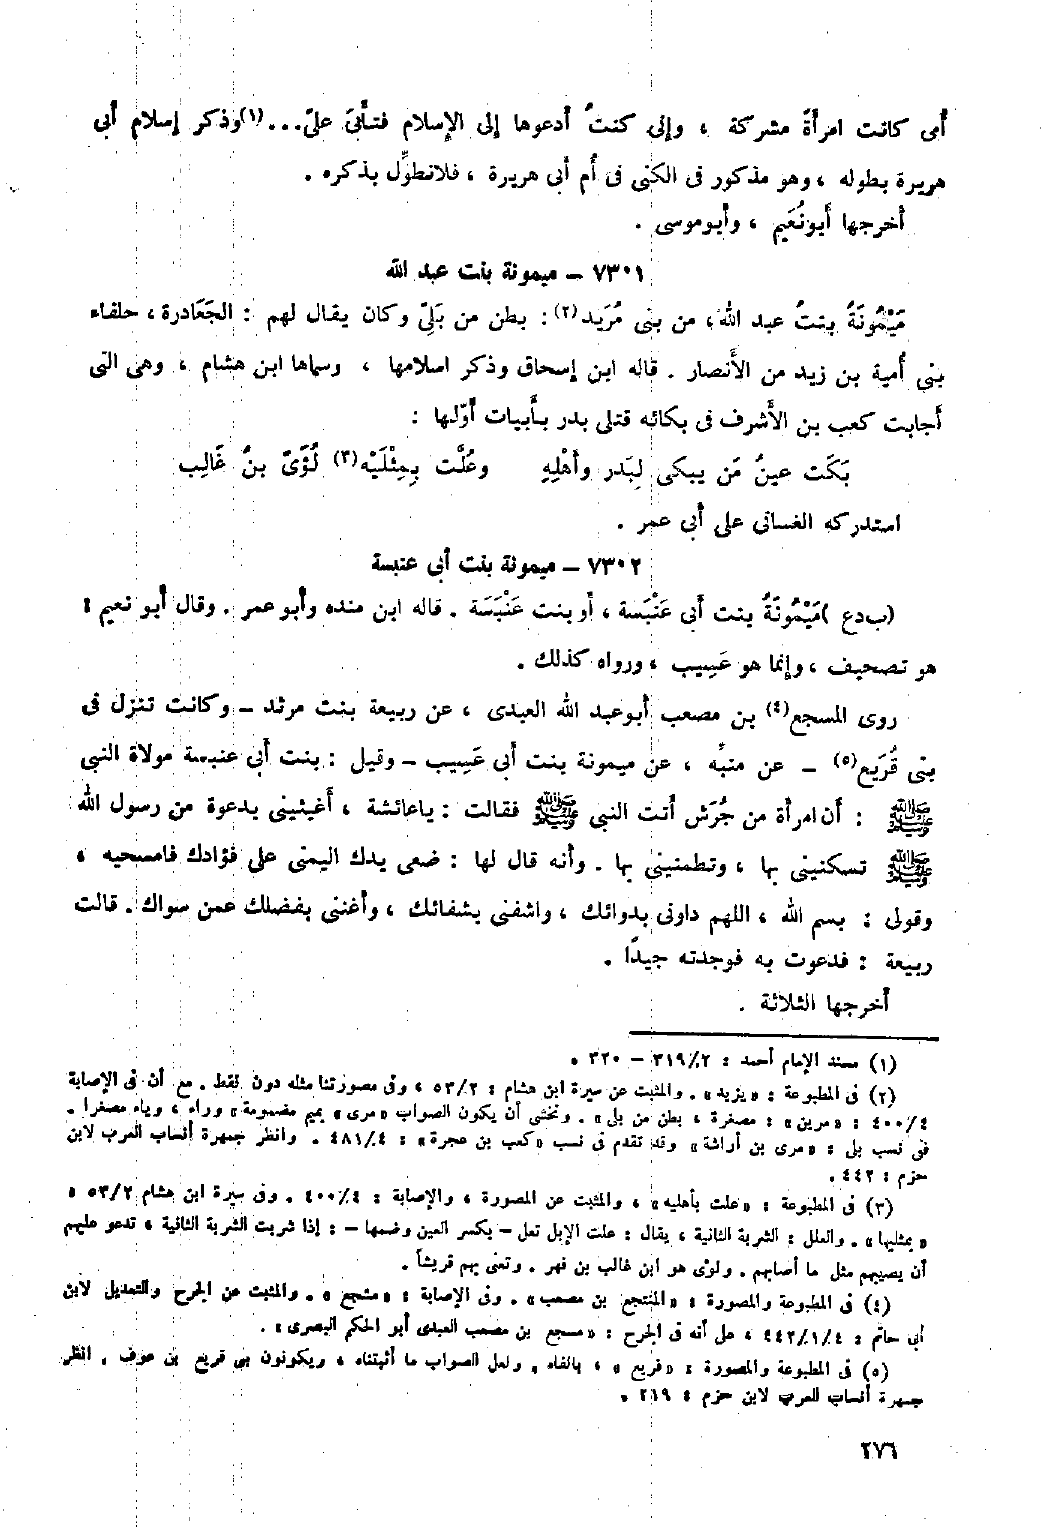 أمى كانت امرأةً مشركة ، وإنى كنتُ أدعوها إلى الإسلام فتأبى علىّ...(١) وذكر إسلام أبى
هريرة بطوله ، وهو مذكور فى الكنى فى أُم أبى هريرة ، فلانطوِّل بذكره .
أخرجها أبونُعَيم ، وأبوموسى .
٧٣٠١ – ميمونة بنت عبد الله
مَيْمُونَةُ بنتُ عبد الله، من بنى مُرَيد(٢) : بطن من بَلِىّ وكان يقال لهم : الجَعَادرة ، حلفاء
بنى أُمية بن زيد من الأنصار . قاله ابن إسحاق وذكر اسلامها ، وسماها ابن هشام ، وهى التى
أجابت كعب بن الأشرف فى بكائه قتلى بدر بأبيات أوّلها :
بَكَت عينُ مَن يبكى لِبَدر وأهْلِهِ وعُلَّت بِمِثْلَيْه(٣) لُؤَىّ بنُ غَالِب
استدركه الغسانى على أبى عمر .
٧٣٠٢ – ميمونة بنت أبى عنبسة
(ب د ع) مَيْمُونَةُ بنت أبى عَنْبَسة ، أو بنت عَنْبَسَة . قاله ابن منده وأبو عمر . وقال أبو نعيم :
هو تصحيف ، وإنما هو عَسِيب ، ورواه كذلك .
روى المسجع(٤) بن مصعب أبوعبد الله العبدى ، عن ربيعة بنت مرثد – وكانت تنزل فى
بنى قُرَيع(٥) – عن منبِّه ، عن ميمونة بنت أبى عَسِيب – وقيل : بنت أبى عنبسة مولاة النبى
ﷺ : أن امرأة من جُرَش أتت النبى ﷺ فقالت : ياعائشة ، أغيثينى بدعوة من رسول الله
ﷺ تسكنينى بها ، وتطمنينى بها . وأنه قال لها : ضعى يدك اليمنى على فؤادك فامسحيه ،
وقولى : بسم الله ، اللهم داونى بدوائك ، واشفنى بشفائك ، وأغننى بفضلك عمن سواك . قالت
ربيعة : فدعوت به فوجدته جيدًا .
أخرجها الثلاثة .
(١) مسند الإمام أحمد : ٣١٩/٢ – ٣٢٠ .
(٢) فى المطبوعة : «يزيد» . والمثبت عن سيرة ابن هشام : ٥٣/٢ ، وفى مصورتنا مثله دون نقط . مع أن فى الإصابة
٤٠٠/٤ : «مرين» : مصغرة ، بطن من بلى» . ونخشى أن يكون الصواب «مرى» بميم مضمومة» وراء ، وياء مصغرا .
فى نسب بلى : «مرى بن أراشة» وقد تقدم فى نسب «كعب بن عجرة» : ٤٨١/٤ . وانظر جمهرة أنساب العرب لابن
حزم : ٤٤٢ .
(٣) فى المطبوعة : «علت بأهليه» ، والمثبت عن المصورة ، والإصابة : ٤٠٠/٤ . وفى سيرة ابن هشام ٥٣/٢ «
«بمثليها» . والعلل : الشربة الثانية ، يقال : علت الإبل تعل – بكسر العين وضمها – : إذا شربت الشربة الثانية ، تدعو عليهم
أن يصيبهم مثل ما أصابهم . ولؤى هو ابن غالب بن فهر . وتعنى بهم قريشاً .
(٤) فى المطبوعة والمصورة : «المنتجع بن مصعب» . وفى الإصابة : «مشجع» . والمثبت عن الجرح والتعديل لابن
أبى حاتم : ٤٤٢/١/٤ ، على أنه فى الجرح : «مسجع بن مصعب العبدى أبو الحكم البصرى» .
(٥) فى المطبوعة والمصورة : «فريع» ، بالفاء . ولعل الصواب ما أثبتناه ، ويكونون بنى قريع بن عوف . انظر
جمهرة أنساب العرب لابن حزم : ٢١٩ .
٢٧٦